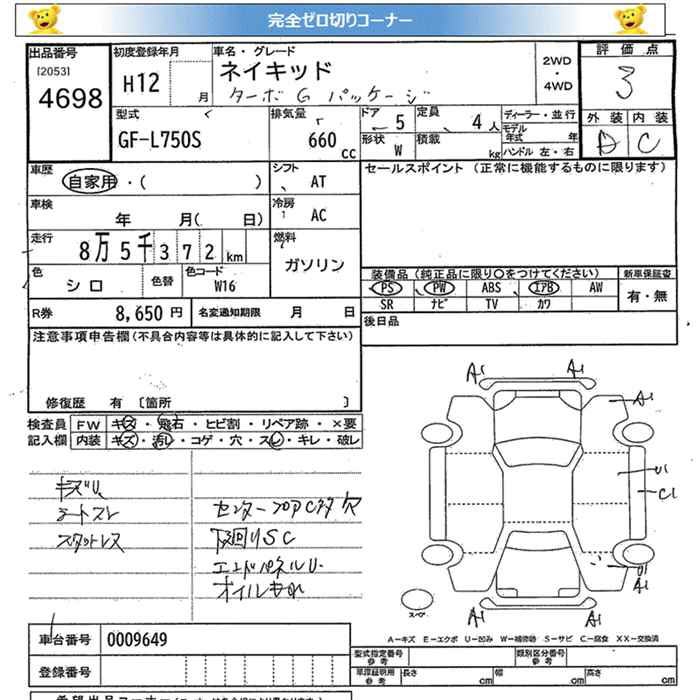 完全ゼロ切りコーナー
出品番号 [2053] 4698
初度登録年月 H12 月
車名・グレード ネイキッド
ターボG パッケージ
2WD ・ 4WD
評価点 3
外装 内装 C
型式 GF-L750S
排気量 660 cc
ドア 5 定員 4人
形状 W 積載 kg
ディーラー・並行
モデル年式 年
ハンドル 左・右
車歴 自家用・( )
シフト AT
セールスポイント (正常に機能するものに限ります)
車検 年 月( 日)
冷房 AC
走行 8万5千372km
燃料 ガソリン
色 シロ 色替 色コード W16
装備品(純正品に限り○をつけてください) 新車保証書
PS PW ABS エアB AW 有・無
SR ナビ TV カワ
R券 8,650円 名変通知期限 月 日
後日品
注意事項申告欄(不具合内容等は具体的に記入して下さい)
修復歴 有 〔箇所 〕
検査員記入欄 FW キズ・飛石・ヒビ割・リペア跡・×要
内装 キズ・汚レ・コゲ・穴・スレ・キレ・破レ
キズU
シートスレ
スタットレス
センターフロアC多 穴
下廻りSC
エンドパネルU
オイルもれ
A1 A1
A1
U1
C1
U1
A1
A1 A1
スペア
A−キズ E−エクボ U−凹み W−補修跡 S−サビ C−腐食 XX−交換済
車台番号 0009649
型式指定番号 参考 類別区分番号 参考
登録番号
車庫証明用 参考 長さ cm 幅 cm 高さ cm